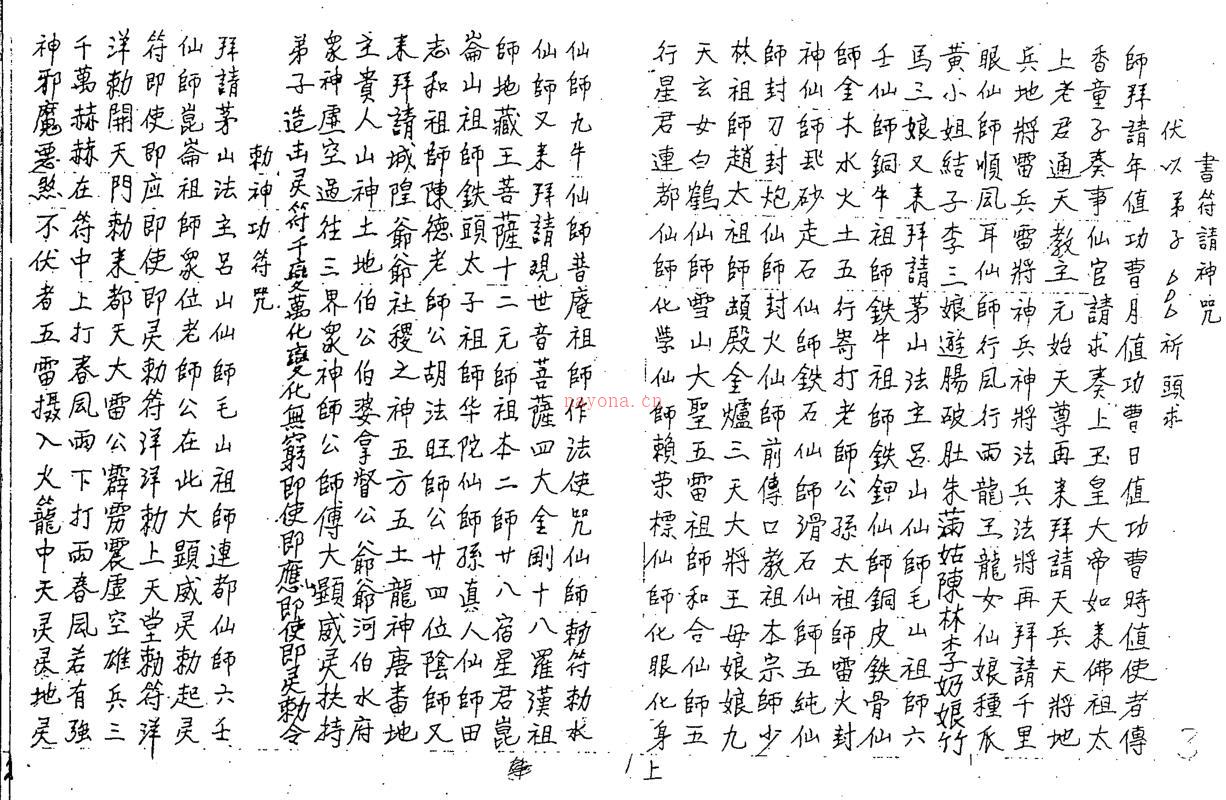 書符請神咒
伏以弟子 祈頭求
師拜請年值功曹月值功曹日值功曹時值使者傳
香童子奏事仙官請求奏上玉皇大帝如来佛祖太
上老君通天教主元始天尊再来拜請天兵天將地
兵地將雷兵雷將神兵神將法兵法將再拜請千里
眼仙師順風耳仙師行風行雨龍王龍女仙娘種瓜
黃小姐結子李三娘遊腸破肚朱滿姑陳林李奶娘竹
馬三娘又来拜請茅山法主呂山仙師毛山祖師六
壬仙師銅牛祖師鉄牛祖師鉄鉀仙師銅皮鉄骨仙
師金木水火土五行寄打老師公孫太祖師雷火封
神仙師飛砂走石仙師鉄石仙師滑石仙師五純仙
師封刀封炮仙師封火仙師前傳口教祖本宗師少
林祖師趙太祖師頡殿金爐三天大將王母娘娘九
天玄女白鶴仙師雪山大聖五雷祖師和合仙師五
行星君連都仙師化学仙師賴荣標仙師化眼化身
仙師九牛仙師普庵祖師作法使咒仙師勅符勅水
仙師又来拜請現世音菩薩四大金剛十八羅漢祖
師地藏王菩薩十二元師祖本二師廿八宿星君崑
崙山祖師鉄頭太子祖師华陀仙師孫真人仙師田
志和祖師陳德老師公胡法旺師公廿四位陰師又
来拜請城隍爺爺社稷之神五方五土龍神唐番地
主貴人山神土地伯公伯婆拿督公爺爺河伯水府
衆神虛空過往三界衆神師公師傅大顯威灵扶持
弟子造出灵符千變萬化變化無窮即使即應即使即灵勅令
勅神功符咒
拜請茅山法主呂山仙師毛山祖師連都仙師六壬
仙師崑崙祖師衆位老師公在此大顕威灵勅起灵
符即使即应即使即灵勅符洋洋勅上天堂勅符洋
洋勅開天門勅来都天大雷公霹雳震虛空雄兵三
千萬赫赫在符中上打春風雨下打雨春風若有強
神邪魔悪煞不伏者五雷摄入火籠中天灵灵地灵
上
nayona.cn
3